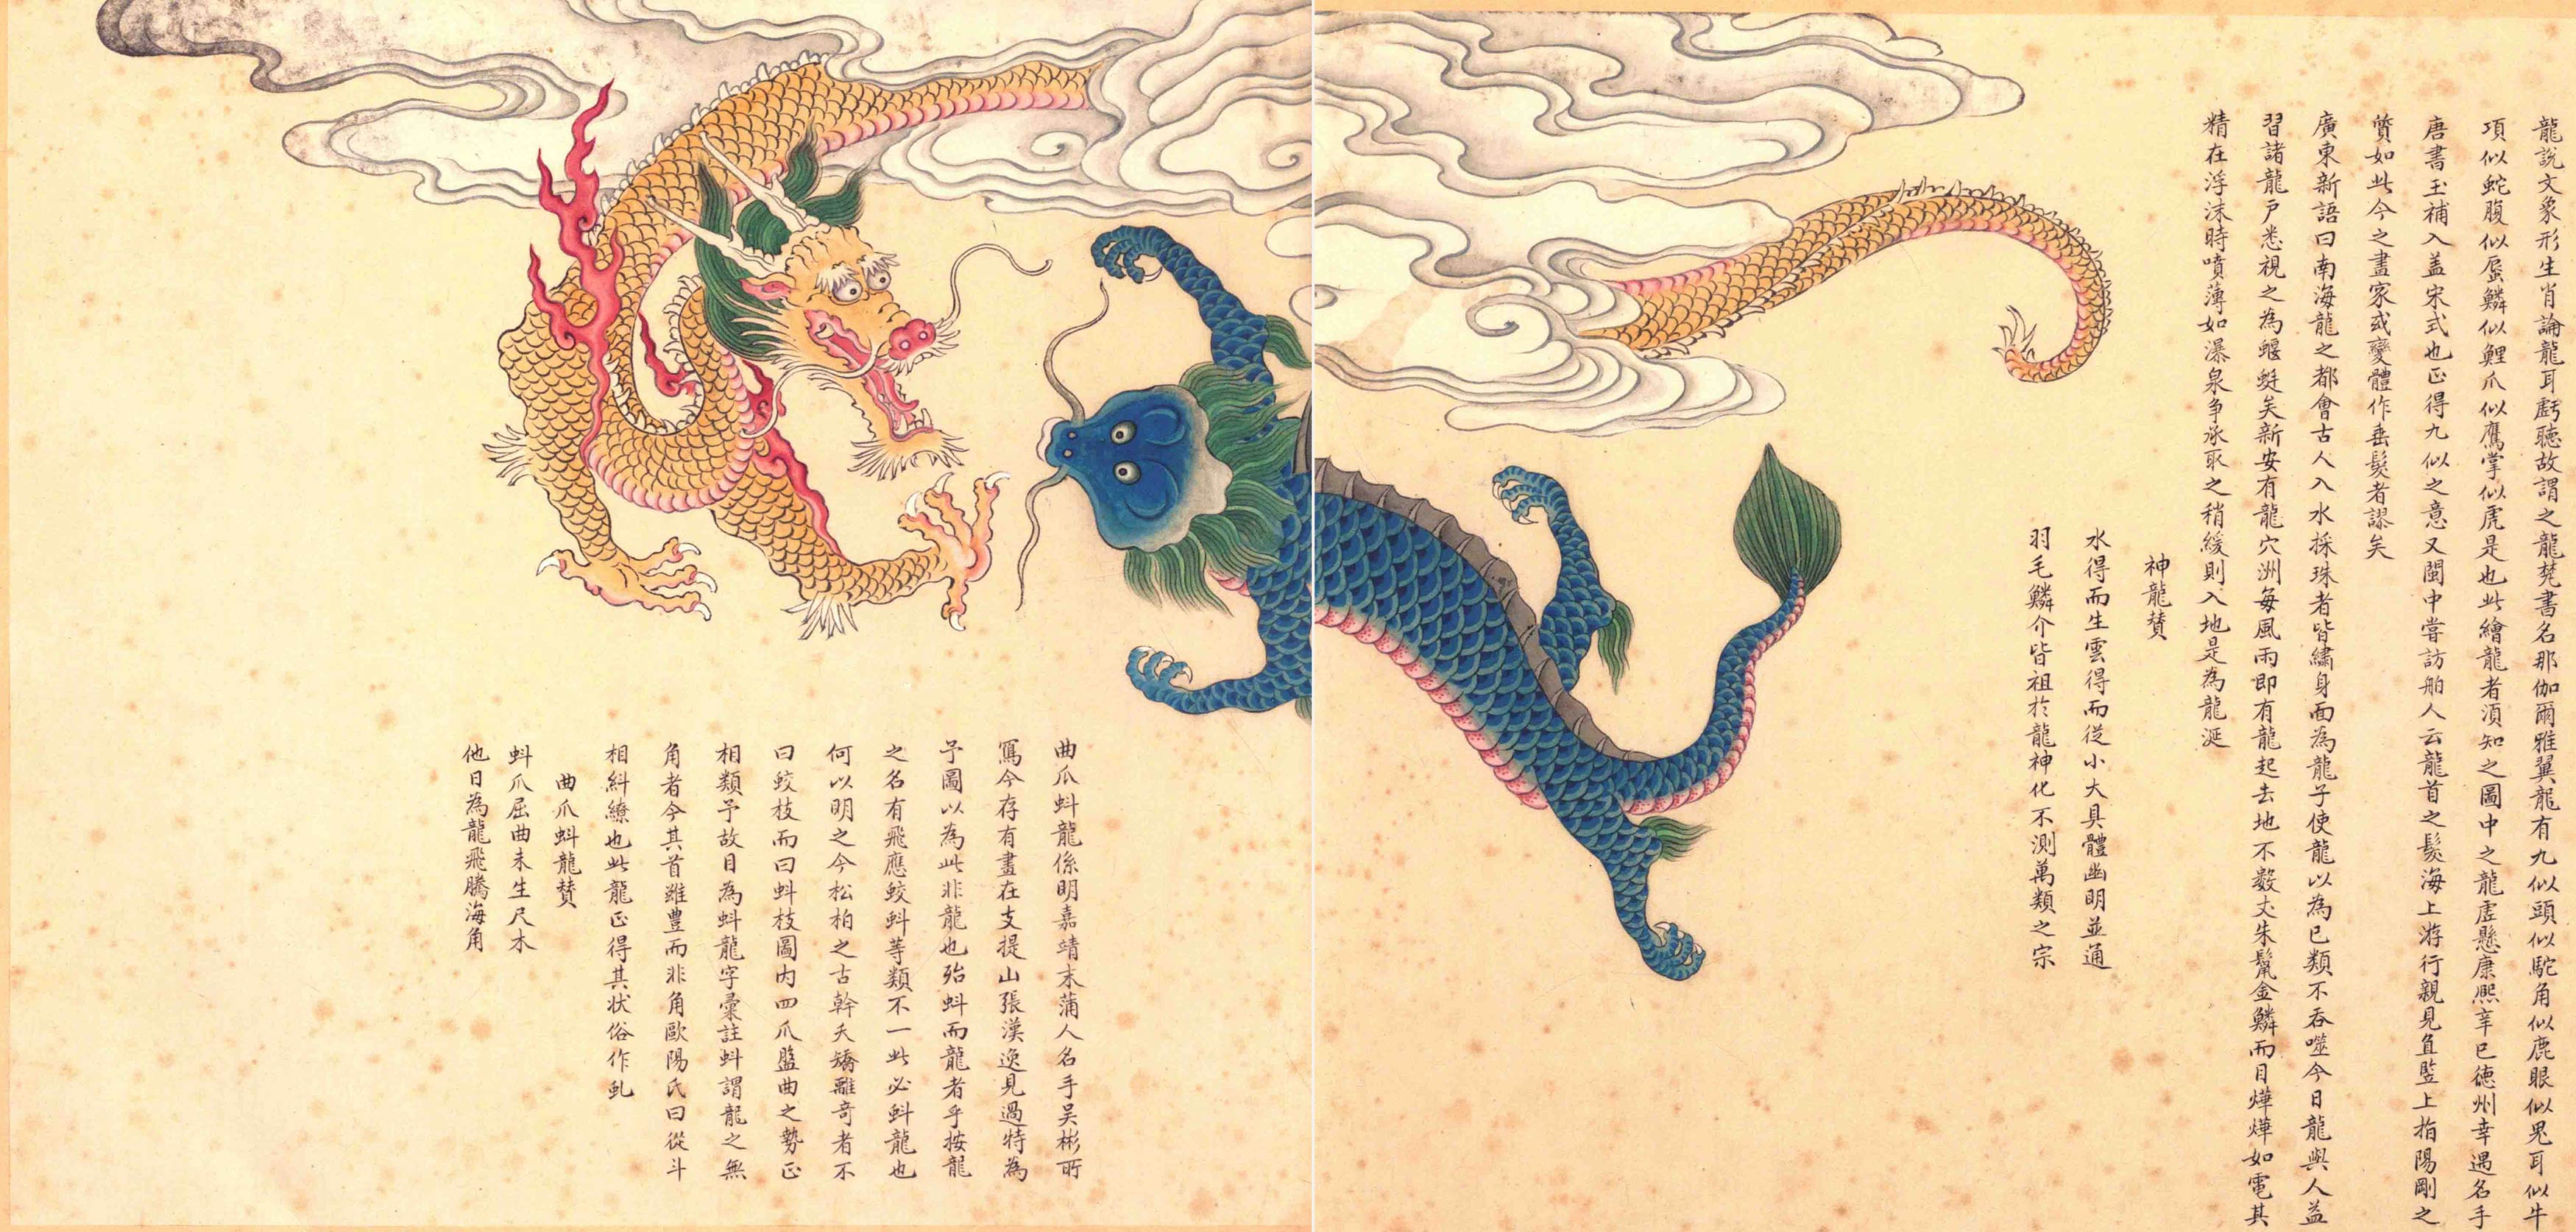 龍說文象形生肖論龍耳虧聽故謂之龍梵書名那伽爾雅翼龍有九似頭似駝角似鹿眼似鬼耳似牛
項似蛇腹似蜃鱗似鯉爪似鷹掌似虎是也此繪龍者須知之圖中之龍虛懸康熙辛巳德州幸遇名手
唐書玉補入蓋宋式也正得九似之意又閩中嘗訪舶人云龍首之髮海上游行親見直豎上指陽剛之
質如此今之畫家或變體作垂髮者謬矣
廣東新語曰南海龍之都會古人入水採珠者皆繡身面為龍子使龍以為己類不吞噬今日龍與人益
習諸龍戶悉視之為蝘蜓矣新安有龍穴洲每風雨即有龍起去地不數丈朱鬣金鱗而目燁燁如電其
精在浮沫時噴薄如瀑泉爭承取之稍緩則入地是為龍涎
神龍贊
水得而生雲得而從小大具體幽明並通
羽毛鱗介皆祖於龍神化不測萬類之宗
曲爪蚪龍係明嘉靖末蒲人名手吳彬所
寫今存有畫在支提山張漢逸見過特為
予圖以為此非龍也殆蚪而龍者乎按龍
之名有飛應蛟蚪等類不一此必蚪龍也
何以明之今松柏之古幹夭矯離奇者不
曰蛟枝而曰蚪枝圖內四爪盤曲之勢正
相類予故目為蚪龍字彙註蚪謂龍之無
角者今其首雖豐而非角歐陽氏曰從斗
相糾繚也此龍正得其狀俗作虬
曲爪蚪龍贊
蚪爪屈曲未生尺木
他日為龍飛騰海角